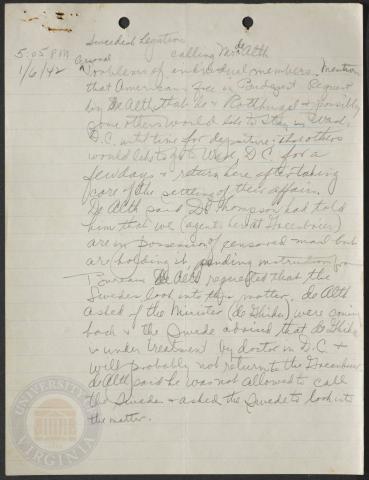 Swedish Legation
5:05 PM calling Mr. de Alth
1/6/42 Personal
problems of individual members. Mention
that Americans free in Budapest. Request
by de Alth that he & possibly
some others would like to stay in Wash,
D.C. until time for departure; that others
would like to go to Wash, D.C. for a
few days & return here after taking
care of the settling of their affairs.
de Alth said Dr. Thompson had told
him that we (agents here at Greenbrier)
are in possession of censored mail but
are holding it pending instructions from
de Alth requested that the
Swedes look into this matter. de Alth
asked if the Minister (de Ghika) were coming
back & the Swede advised that de Ghika
is under treatment by doctor in D.C. &
will probably not return to the Greenbrier
de Alth said he was not allowed to call
the Swedes & asked the Swede to look into
the matter.
UNIVERSITY
VIRGINIA